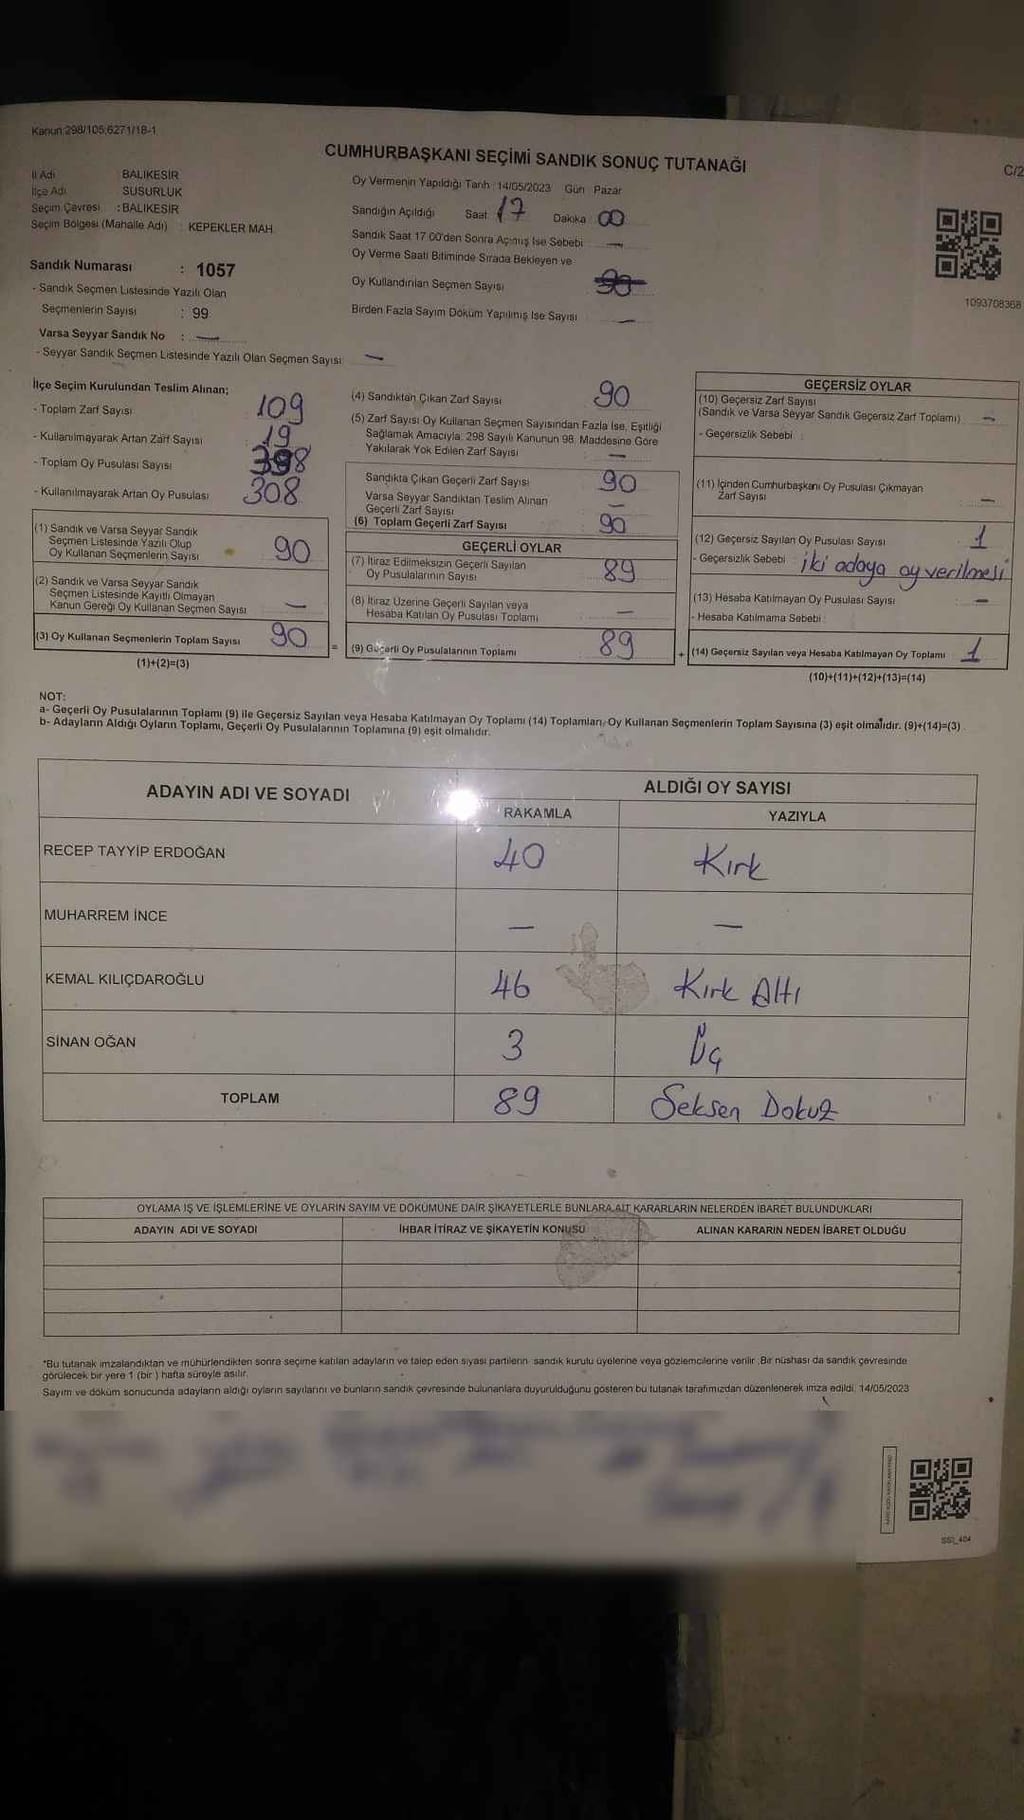 Kanun:298/105;6271/18-1
CUMHURBAŞKANI SEÇİMİ SANDIK SONUÇ TUTANAĞI
C/2
İl Adı : BALIKESİR
İlçe Adı SUSURLUK
Seçim Çevresi : BALIKESİR
Seçim Bölgesi (Mahalle Adı) : KEPEKLER MAH.
Oy Vermenin Yapıldığı Tarih : 14/05/2023 Gün Pazar
Sandığın Açıldığı Saat 17 Dakika 00
Sandık Saat 17.00'den Sonra Açılmış İse Sebebi —
Oy Verme Saati Bitiminde Sırada Bekleyen ve
Oy Kullandırılan Seçmen Sayısı
Birden Fazla Sayım Döküm Yapılmış İse Sayısı —
1093708368
Sandık Numarası : 1057
- Sandık Seçmen Listesinde Yazılı Olan
Seçmenlerin Sayısı : 99
Varsa Seyyar Sandık No : —
- Seyyar Sandık Seçmen Listesinde Yazılı Olan Seçmen Sayısı —
İlçe Seçim Kurulundan Teslim Alınan;
- Toplam Zarf Sayısı 109
- Kullanılmayarak Artan Zarf Sayısı : 19
- Toplam Oy Pusulası Sayısı 398
- Kullanılmayarak Artan Oy Pusulası 308
(1) Sandık ve Varsa Seyyar Sandık
Seçmen Listesinde Yazılı Olup
Oy Kullanan Seçmenlerin Sayısı 90
(2) Sandık ve Varsa Seyyar Sandık
Seçmen Listesinde Kayıtlı Olmayan
Kanun Gereği Oy Kullanan Seçmen Sayısı —
(3) Oy Kullanan Seçmenlerin Toplam Sayısı 90
(1)+(2)=(3)
(4) Sandıktan Çıkan Zarf Sayısı 90
(5) Zarf Sayısı Oy Kullanan Seçmen Sayısından Fazla İse, Eşitliği
Sağlamak Amacıyla, 298 Sayılı Kanunun 98. Maddesine Göre
Yakılarak Yok Edilen Zarf Sayısı —
Sandıkta Çıkan Geçerli Zarf Sayısı 90
Varsa Seyyar Sandıktan Teslim Alınan
Geçerli Zarf Sayısı —
(6) Toplam Geçerli Zarf Sayısı 90
GEÇERLİ OYLAR
(7) İtiraz Edilmeksizin Geçerli Sayılan
Oy Pusulalarının Sayısı 89
(8) İtiraz Üzerine Geçerli Sayılan veya
Hesaba Katılan Oy Pusulası Toplamı —
= (9) Geçerli Oy Pusulalarının Toplamı 89
GEÇERSİZ OYLAR
(10) Geçersiz Zarf Sayısı
(Sandık ve Varsa Seyyar Sandık Geçersiz Zarf Toplamı) —
- Geçersizlik Sebebi :
(11) İçinden Cumhurbaşkanı Oy Pusulası Çıkmayan
Zarf Sayısı —
(12) Geçersiz Sayılan Oy Pusulası Sayısı 1
- Geçersizlik Sebebi iki adaya oy verilmesi
(13) Hesaba Katılmayan Oy Pusulası Sayısı —
- Hesaba Katılmama Sebebi :
+ (14) Geçersiz Sayılan veya Hesaba Katılmayan Oy Toplamı 1
(10)+(11)+(12)+(13)=(14)
NOT:
a- Geçerli Oy Pusulalarının Toplamı (9) ile Geçersiz Sayılan veya Hesaba Katılmayan Oy Toplamı (14) Toplamları, Oy Kullanan Seçmenlerin Toplam Sayısına (3) eşit olmalıdır. (9)+(14)=(3)
b- Adayların Aldığı Oyların Toplamı, Geçerli Oy Pusulalarının Toplamına (9) eşit olmalıdır.
ADAYIN ADI VE SOYADI
ALDIĞI OY SAYISI
RAKAMLA YAZIYLA
RECEP TAYYİP ERDOĞAN 40 Kırk
MUHARREM İNCE — —
KEMAL KILIÇDAROĞLU 46 Kırk Altı
SİNAN OĞAN 3 Üç
TOPLAM 89 Seksen Dokuz
OYLAMA İŞ VE İŞLEMLERİNE VE OYLARIN SAYIM VE DÖKÜMÜNE DAİR ŞİKAYETLERLE BUNLARA AİT KARARLARIN NELERDEN İBARET BULUNDUKLARI
ADAYIN ADI VE SOYADI İHBAR İTİRAZ VE ŞİKAYETİN KONUSU ALINAN KARARIN NEDEN İBARET OLDUĞU
*Bu tutanak imzalandıktan ve mühürlendikten sonra seçime katılan adayların ve talep eden siyasi partilerin sandık kurulu üyelerine veya gözlemcilerine verilir. Bir nüshası da sandık çevresinde
görülecek bir yere 1 (bir) hafta süreyle asılır.
Sayım ve döküm sonucunda adayların aldığı oyların sayılarını ve bunların sandık çevresinde bulunanlara duyurulduğunu gösteren bu tutanak tarafımızdan düzenlenerek imza edildi. 14/05/2023
SSI_404